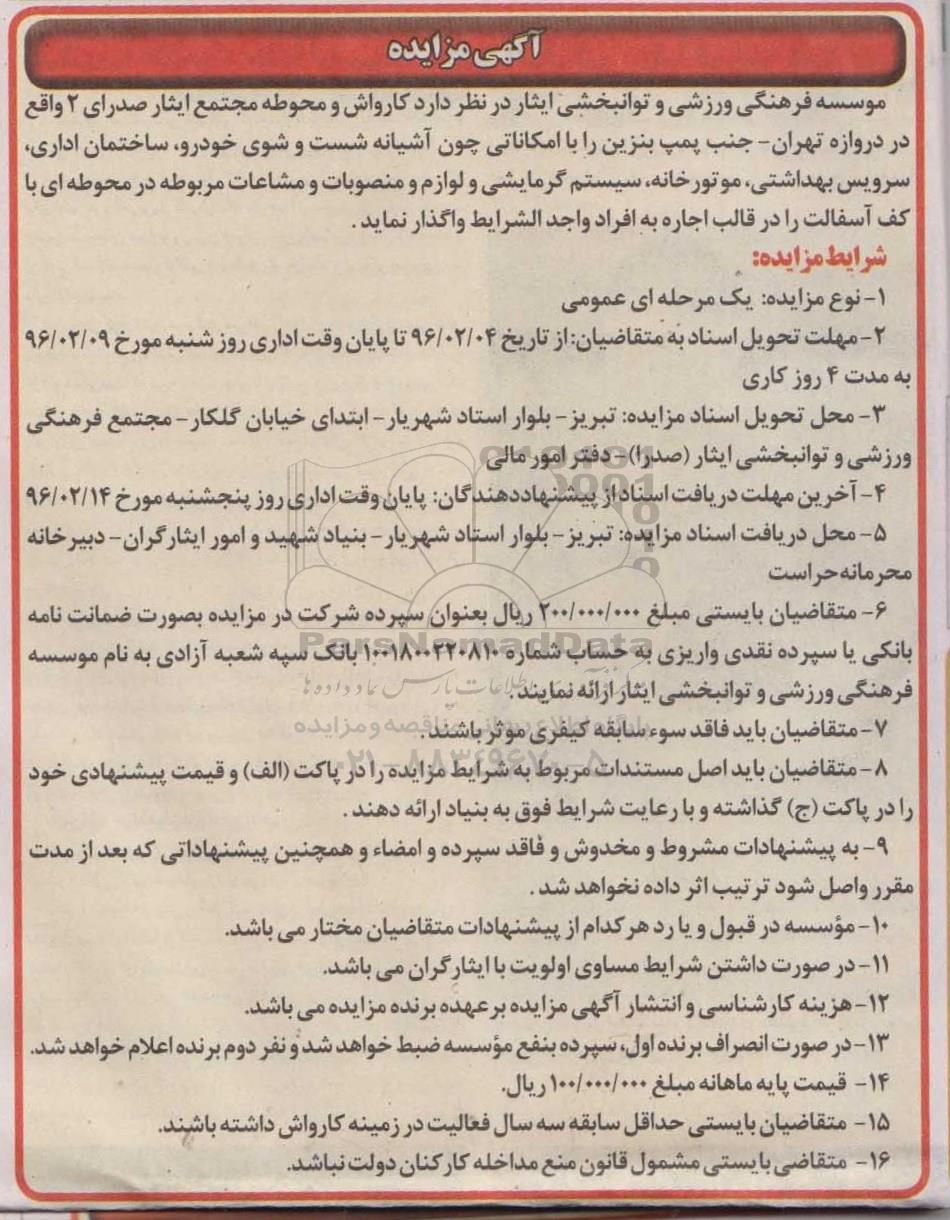 آگهی مزایده
موسسه فرهنگی ورزشی و توانبخشی ایثار در نظر دارد کارواش و محوطه مجتمع ایثار صدرای ۲ واقع
در دروازه تهران- جنب پمپ بنزین را با امکاناتی چون آشیانه شست و شوی خودرو، ساختمان اداری،
سرویس بهداشتی، موتورخانه، سیستم گرمایشی و لوازم و منصوبات و مشاعات مربوطه در محوطه ای با
کف آسفالت را در قالب اجاره به افراد واجد الشرایط واگذار نماید .
شرایط مزایده:
۱- نوع مزایده: یک مرحله ای عمومی
۲- مهلت تحویل اسناد به متقاضیان: از تاریخ ۹۶/۰۲/۰۴ تا پایان وقت اداری روز شنبه مورخ ۹۶/۰۲/۰۹
به مدت ۴ روز کاری
۳- محل تحویل اسناد مزایده: تبریز- بلوار استاد شهریار- ابتدای خیابان گلکار- مجتمع فرهنگی
ورزشی و توانبخشی ایثار (صدرا)- دفتر امور مالی
۴- آخرین مهلت دریافت اسناد از پیشنهاددهندگان: پایان وقت اداری روز پنجشنبه مورخ ۹۶/۰۲/۱۴
۵- محل دریافت اسناد مزایده: تبریز- بلوار استاد شهریار- بنیاد شهید و امور ایثارگران- دبیرخانه
محرمانه حراست
۶- متقاضیان بایستی مبلغ ۲۰۰/۰۰۰/۰۰۰ ریال بعنوان سپرده شرکت در مزایده بصورت ضمانت نامه
ParsNamadData
بانکی یا سپرده نقدی واریزی به حساب شماره ۱۰۰۱۸۰۰۲۲۰۸۱۰ بانک سپه شعبه آزادی به نام موسسه
فرهنگی ورزشی و توانبخشی ایثار ارائه نمایند .
پایگاه اطلاع رسانی مناقصه و مزایده
۷- متقاضیان باید فاقد سوء سابقه کیفری موثر باشند .
۰۲۱-۸۸۳۴۹۶۷۰-۵
۸- متقاضیان باید اصل مستندات مربوط به شرایط مزایده را در پاکت (الف) و قیمت پیشنهادی خود
را در پاکت (ج) گذاشته و با رعایت شرایط فوق به بنیاد ارائه دهند .
۹- به پیشنهادات مشروط و مخدوش و فاقد سپرده و امضاء و همچنین پیشنهاداتی که بعد از مدت
مقرر واصل شود ترتیب اثر داده نخواهد شد .
۱۰- مؤسسه در قبول و یا رد هرکدام از پیشنهادات متقاضیان مختار می باشد.
۱۱- در صورت داشتن شرایط مساوی اولویت با ایثارگران می باشد.
۱۲- هزینه کارشناسی و انتشار آگهی مزایده برعهده برنده مزایده می باشد.
۱۳- در صورت انصراف برنده اول، سپرده بنفع مؤسسه ضبط خواهد شد و نفر دوم برنده اعلام خواهد شد.
۱۴- قیمت پایه ماهانه مبلغ ۱۰۰/۰۰۰/۰۰۰ ریال.
۱۵- متقاضیان بایستی حداقل سابقه سه سال فعالیت در زمینه کارواش داشته باشند.
۱۶- متقاضی بایستی مشمول قانون منع مداخله کارکنان دولت نباشد.